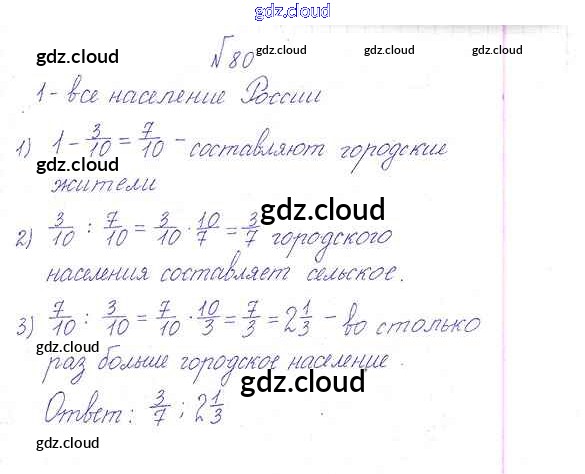 gdz.cloud
№80
gdz.cloud gdz.cloud gdz.cloud
1 - все население России
1) 1 - 3/10 = 7/10 - составляют городские
gdz.cloud
жители
2) 3/10 : 7/10 = 3/10 · 10/7 = 3/7 городского
gdz.cloud
населения составляет сельское.
3) 7/10 : 3/10 = 7/10 · 10/3 = 7/3 = 2 1/3 - во столько
gdz.cloud
раз больше городское население.
gdz.cloud
Ответ: 3/7 ; 2 1/3
gdz.cloud gdz.cloud